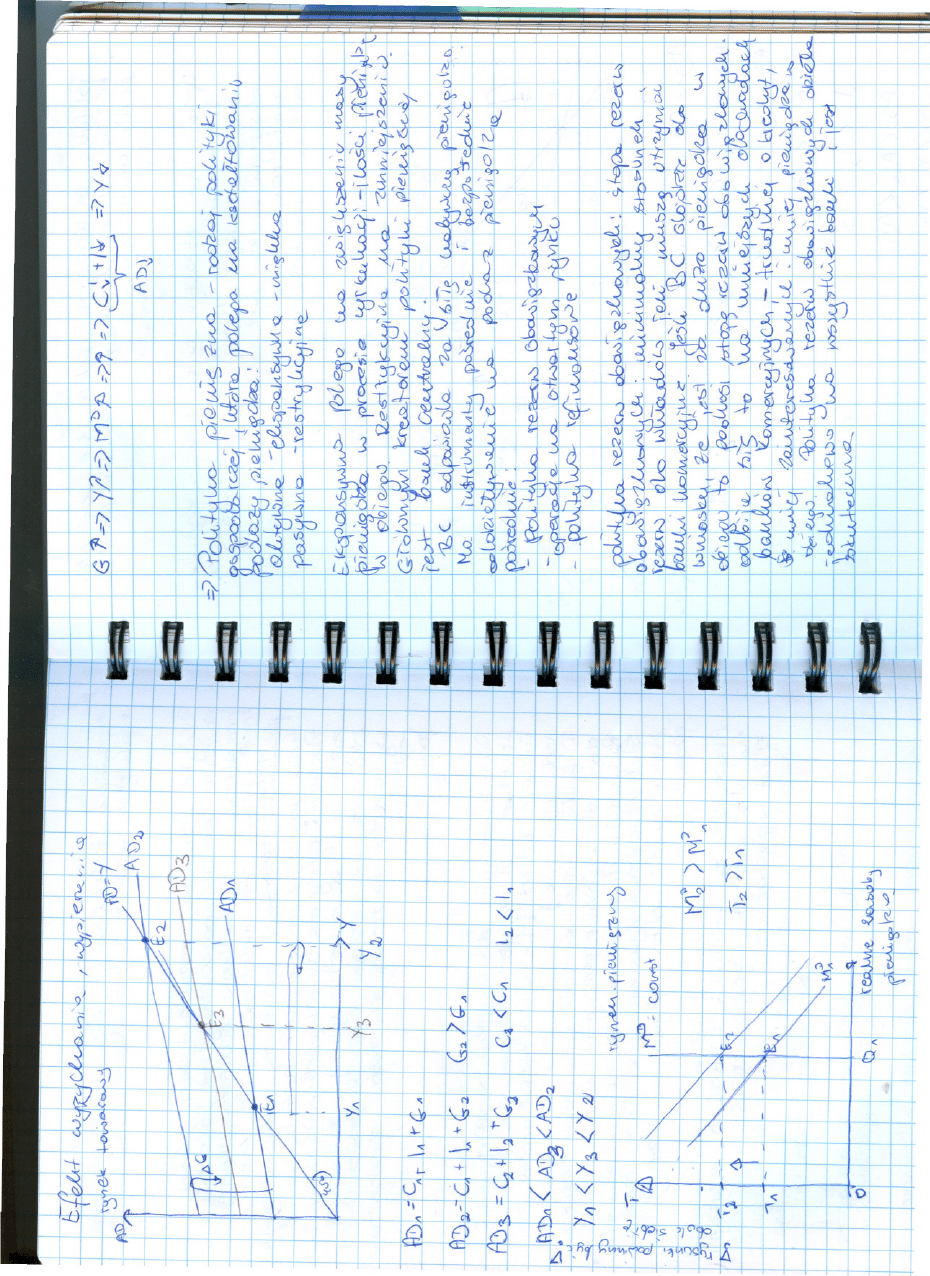 Efekt wypychania, wypierania
rynek towarowy
AD
AD=Y
AD2
AD3
AD1
E2
E3
E1
ΔG
45°
Y1
Y3
Y2
Y
AD1 = C1 + I1 + G1
AD2 = C1 + I1 + G2
G2 > G1
AD3 = C2 + I2 + G2
C2 < C1
I2 < I1
AD1 < AD3 < AD2
Y1 < Y3 < Y2
Δ: rysunki powinny być
obok siebie
rynek pieniężny
MP: const
r
r2
r1
E2
E1
MD1
0
Q1
realne zasoby
pieniężne
MD2 > MD1
r2 > r1
G↑ => YP => MD↑ => r↑ => C↓ + I↓ => Y↓
AD↓
=> Polityka pieniężna - rodzaj polityki
gospodarczej, która polega na kształtowaniu
podaży pieniądza:
aktywna - ekspansywna - miękka
pasywna - restrykcyjna
Ekspansywna polega na zwiększeniu masy
pieniądza w procesie cyrkulacji - ilości pieniądza
w obiegu. Restrykcyjna na zmniejszeniu.
Głównym kreatorem polityki pieniężnej
jest bank centralny.
BC odpowiada za siłę nabywczą pieniądza.
Ma instrumenty pośrednie i bezpośrednie
oddziaływanie na podaż pieniądza
pośrednie:
- polityka rezerw obowiązkowych
- operacje na otwartym rynku
- polityka refinansowa
polityka rezerw obowiązkowych: stopa rezerw
obowiązkowych: minimalny stosunek
rezerw do wkładów jaki muszą utrzymać
banki komercyjne. Jeśli BC dojdzie do
wniosku, że jest za dużo pieniądza w
obiegu to podnosi stopę rezerw obowiązkowych.
odbije się to na mniejszych dochodach
banków komercyjnych - trudniej o kredyt,
mniej zainteresowanych: mniej pieniądza w
obiegu. Polityka rezerw obowiązkowych działa
jednakowo na wszystkie banki i jest
skuteczna